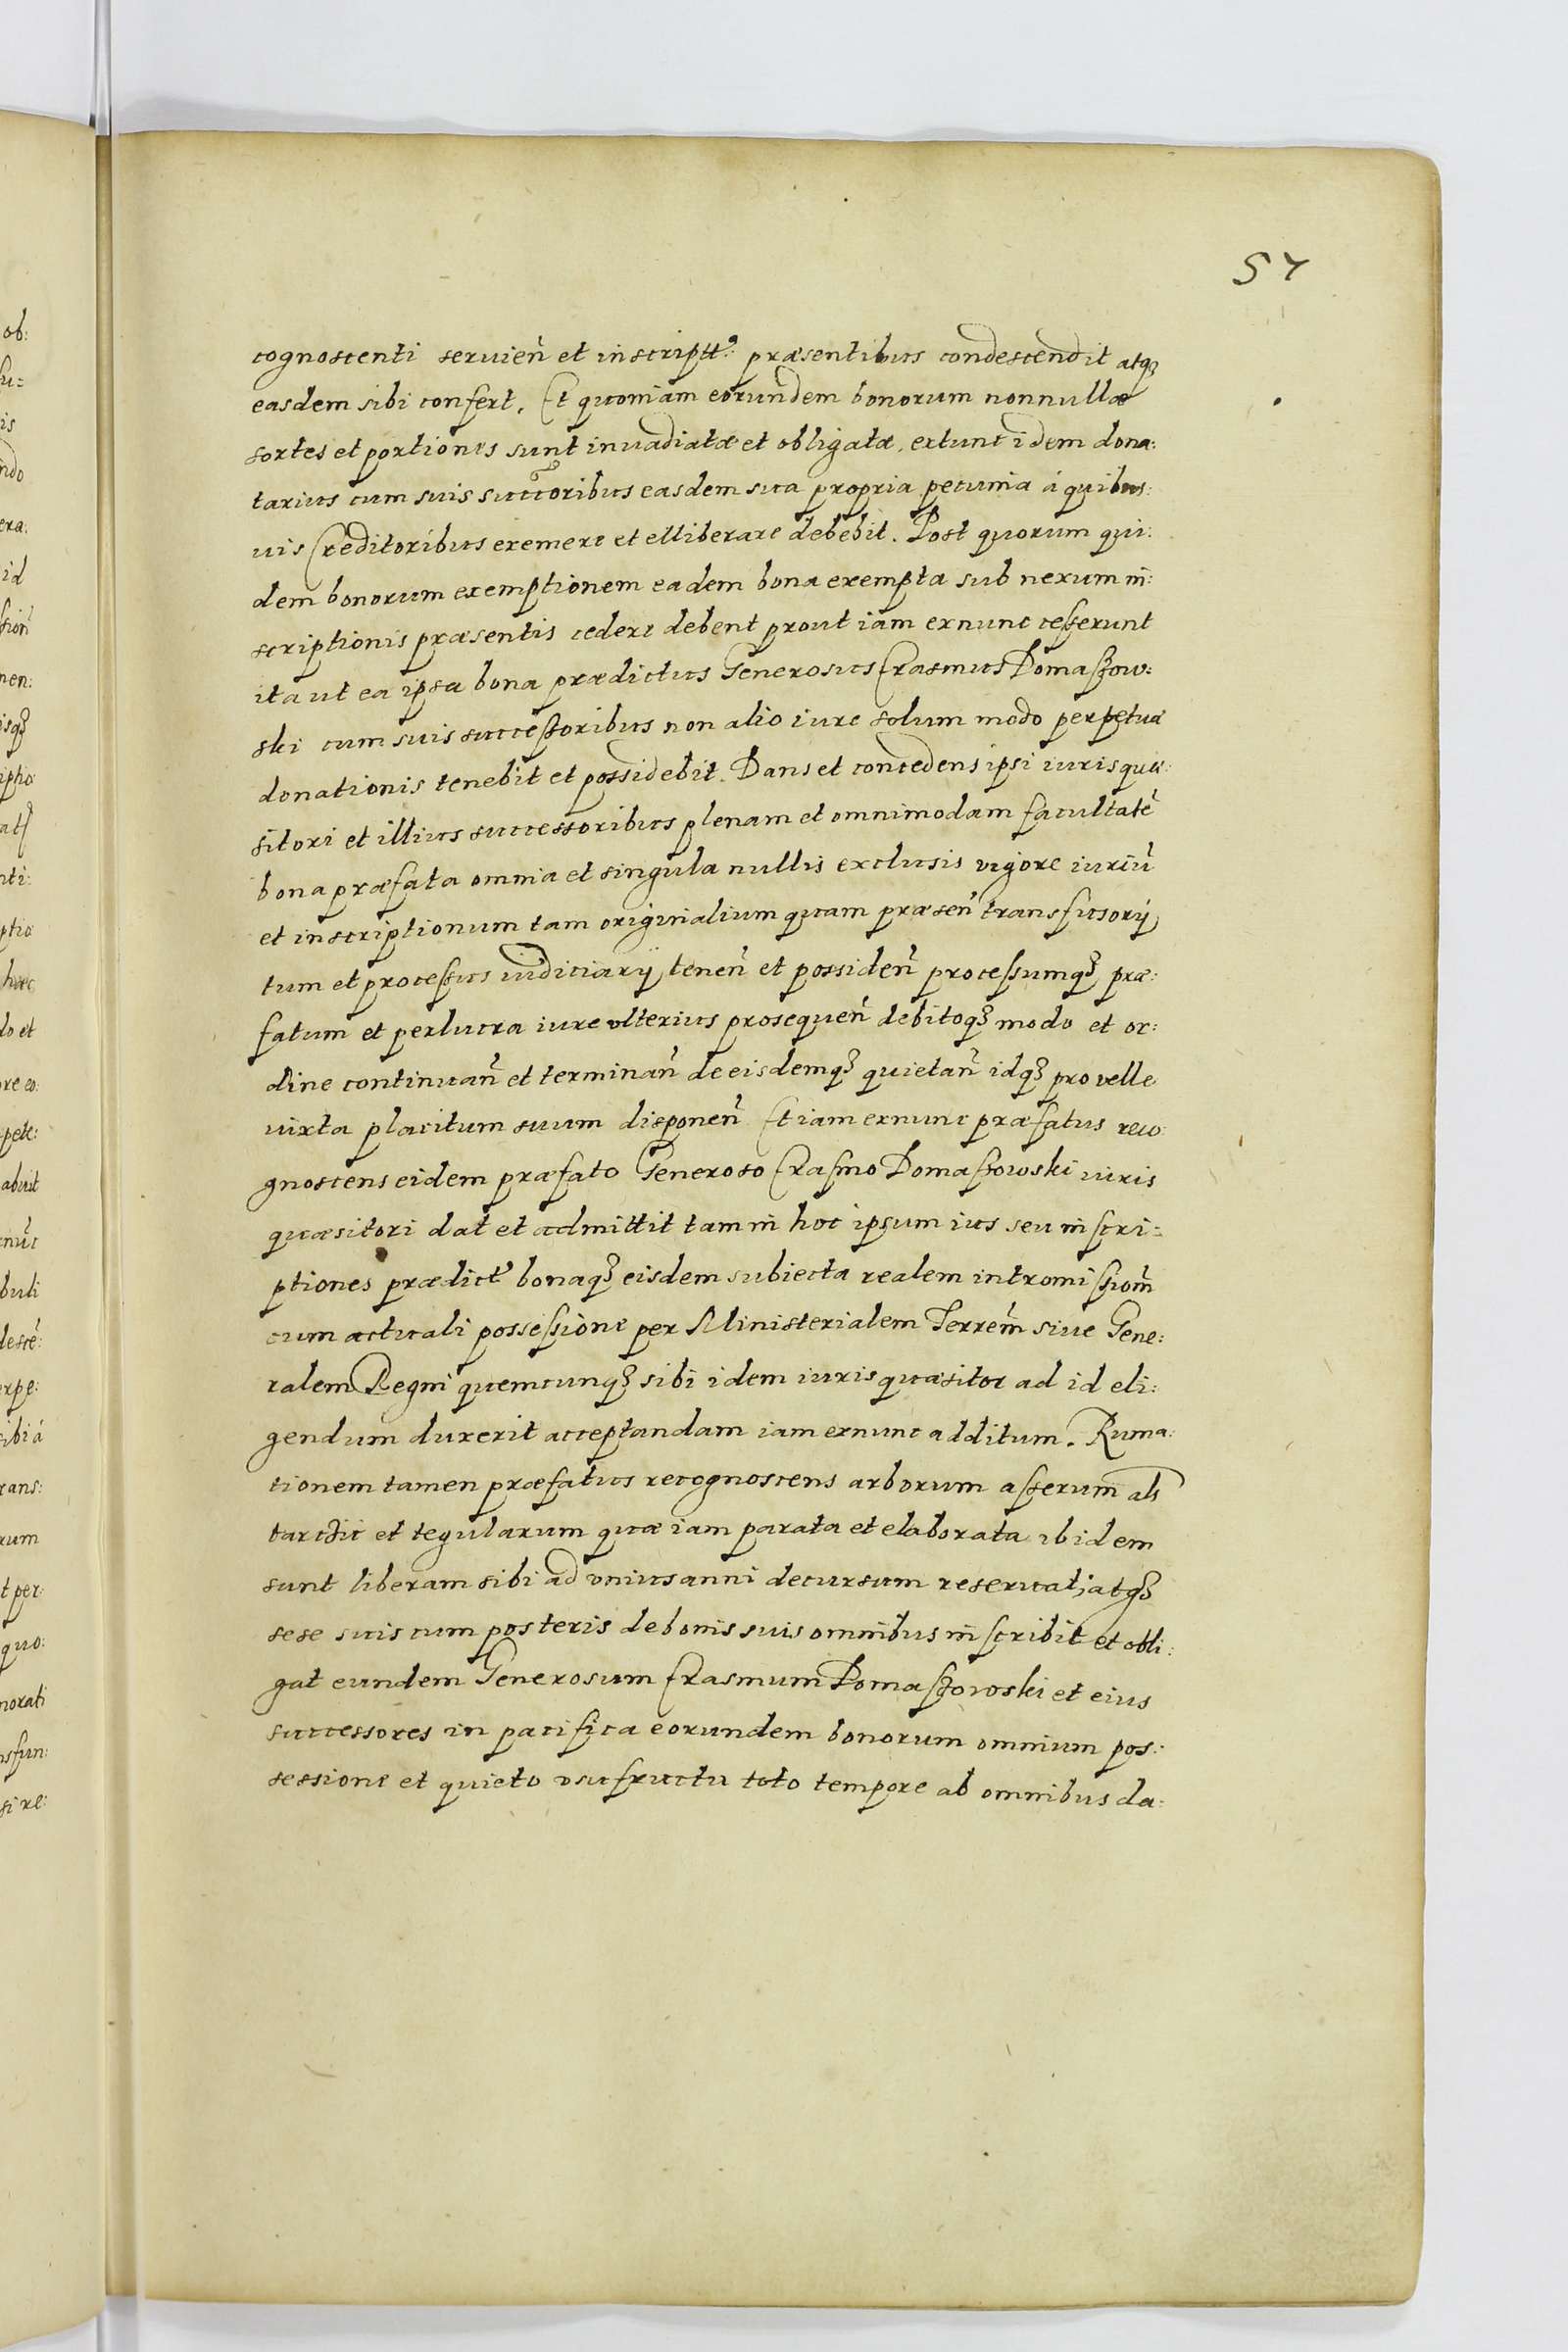 57
cognoscenti servien̄ et inscriptt. præsentibus condescendit atq₃
easdem sibi confert. Et quoniam eorundem bonorum nonnullæ
sortes et portiones sunt invadiatæ et obligatæ, extunc idem dona:
tarius cum suis succoribus easdem sua propria pecunia á quibus:
uis Creditoribus exemere et elliberare debebit. Post quorum qui:
dem bonorum exemptionem eadem bona exempta sub nexum in:
scriptionis præsentis cedere debent prout iam exnunc cesserunt
ita ut ea ipsa bona prædictus Generosus Erasmus Domaszow:
ski cum suis successoribus non alio iure solum modo perpetuæ
donationis tenebit et possidebit. Dans et concedens ipsi iurisquæ:
sitori et illius successoribus plenam et omnimodam facultatē
bona præfata omnia et singula nullis exclusis vigore iuriū
et inscriptionum tam originalium quam præsen̄ transfusorÿ
tum et processus iudiciarÿ tenen̄ et possiden̄ processumq₃ præ:
fatum et perlucra iure vlterius prosequen̄ debitoq₃ modo et or:
dine continuan̄ et terminan̄ de eisdemq₃ quietan̄ idq₃ pro velle
iuxta placitum suum disponen̄ Et iam exnunc præfatus reco:
gnoscens eidem præfato Generoso Erasmo Domaszowski iuris
quæsitori dat et admittit tam in hoc ipsum ius seu inscri:
ptiones prædict. bonaq₃ eisdem subiecta realem intromissiom̄
cum actuali possessione per Ministerialem Terrem̄ siue Gene:
ralem Regni quemcunq₃ sibi idem iuris quæsitor ad id eli:
gendum duxerit acceptandam iam exnunc additum. Ruma:
tionem tamen præfatus recognoscens arborum asserum als
tarczic et tegularum quæ iam parata et elaborata ibidem
sunt liberam sibi ad vnius anni decursum reseruat, atq₃
sese suis cum posteris de bonis suis omnibus inscribit et obli:
gat eundem Generosum Erasmum Domaszowski et eius
successores in pacifica eorundem bonorum omnium pos:
sessione et quieto vsufructu toto tempore ab omnibus da: